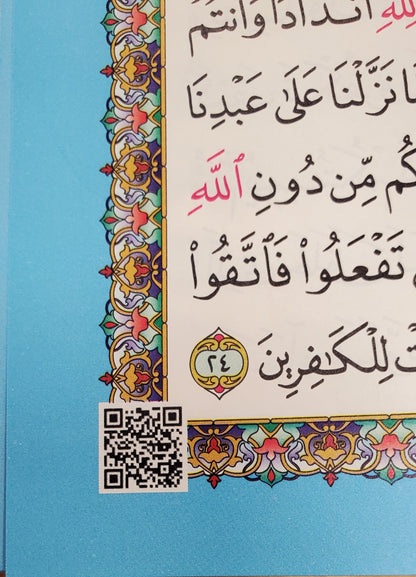 ٱللَّهِ أَندَادًا وَأَنتُمْ
نَزَّلْنَا عَلَىٰ عَبْدِنَا
مِّن دُونِ ٱللَّهِ
تَفْعَلُوا۟ فَٱتَّقُوا۟
لِلْكَـٰفِرِينَ ٢٤